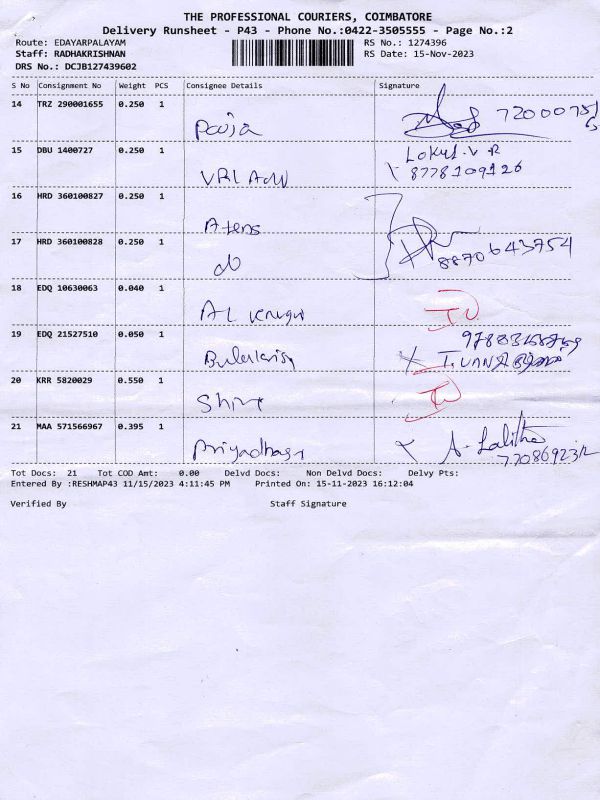 THE PROFESSIONAL COURIERS, COIMBATORE
Delivery Runsheet - P43 - Phone No.:0422-3505555 - Page No.:2
Route: EDAYARPALAYAM
RS No.: 1274396
Staff: RADHAKRISHNAN
RS Date: 15-Nov-2023
DRS No.: DCJB127439602
S No Consignment No Weight PCS Consignee Details Signature
14 TRZ 290001655 0.250 1
Pooja
15 DBU 1400727 0.250 1 Lokul.V R
8778109126
16 HRD 360100827 0.250 1
Atens
17 HRD 360100828 0.250 1
do 8870643754
18 EDQ 10630063 0.040 1
AL
19 EDQ 21527510 0.050 1
20 KRR 5820029 0.550 1
21 MAA 571566967 0.395 1
A. Lalitha
Tot Docs: 21 Tot COD Amt: 0.00 Delvd Docs: Non Delvd Docs: Delvy Pts:
Entered By :RESHMAP43 11/15/2023 4:11:45 PM Printed On: 15-11-2023 16:12:04
Verified By Staff Signature